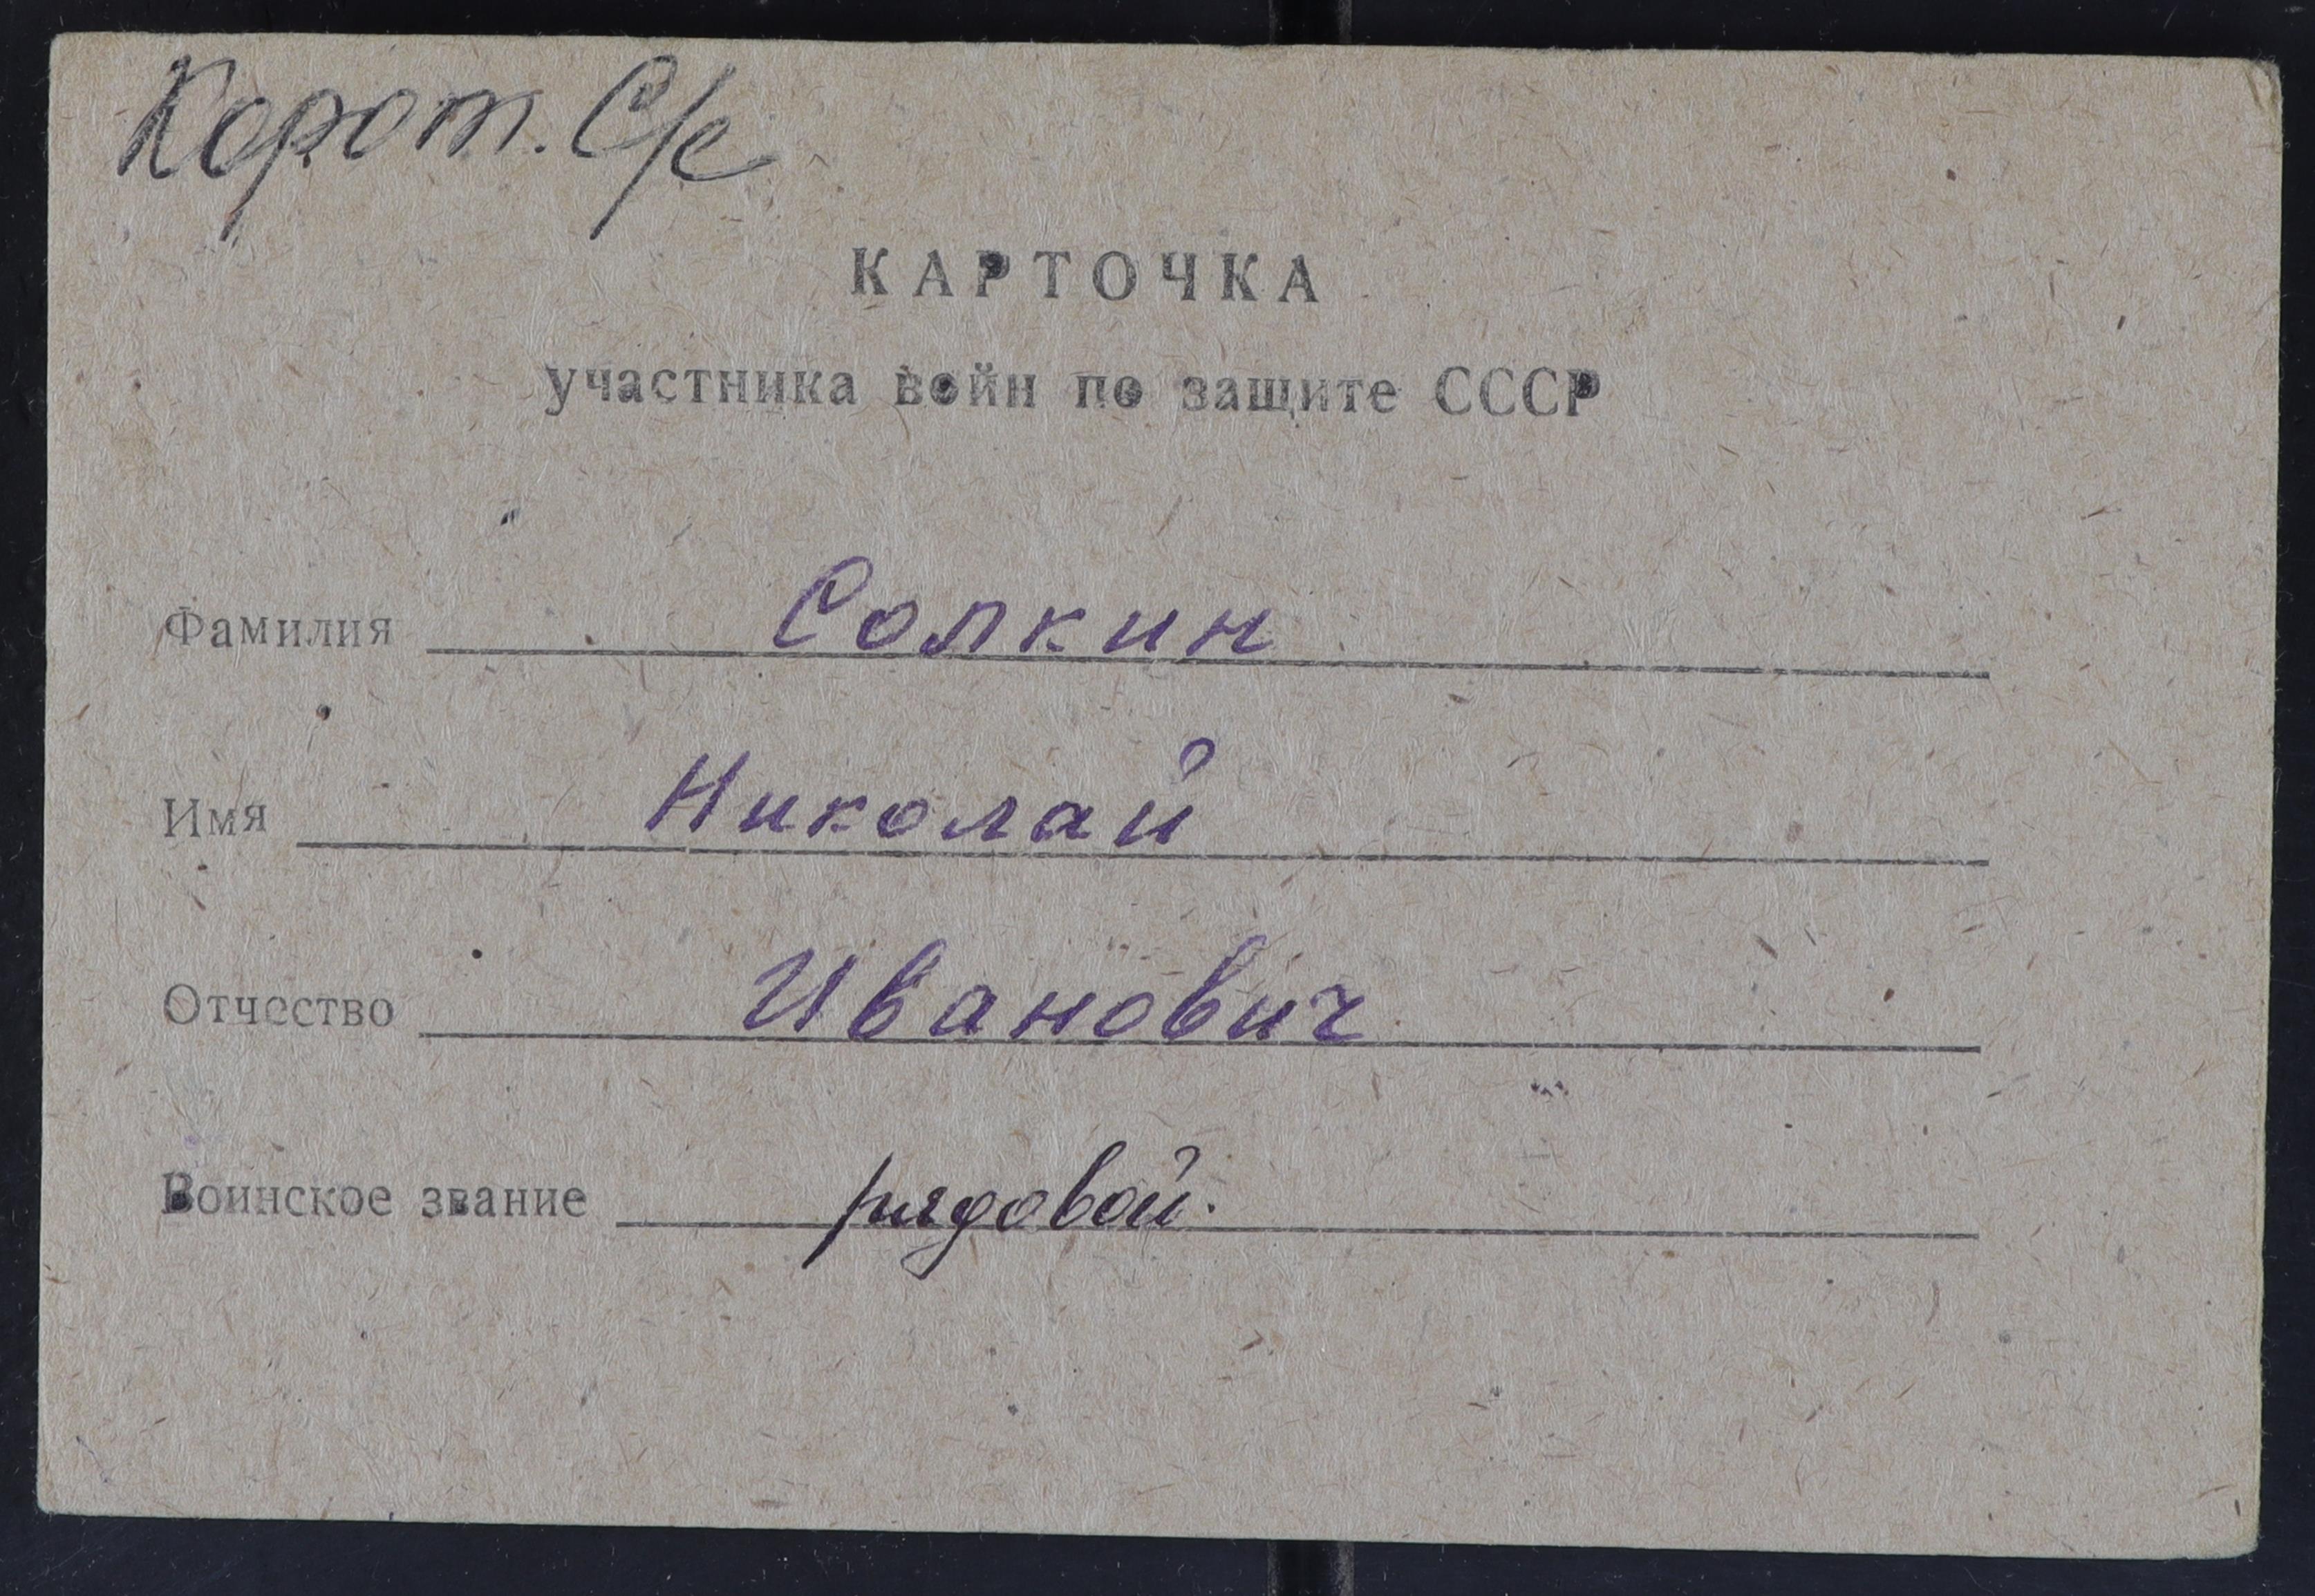 Корот. С/с
КАРТОЧКА
участника войн по защите СССР
Фамилия Солкин
Имя Николай
Отчество Иванович
Воинское звание рядовой.